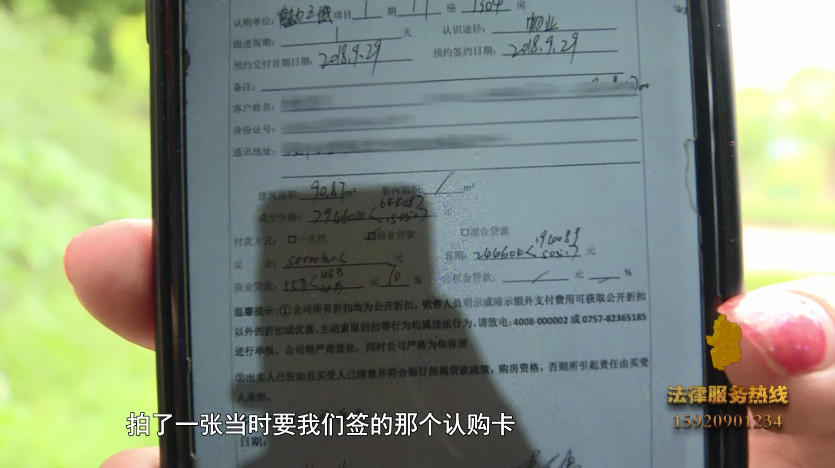 认购单位: 项目 1 期 17 座 1304 房
跟进周期: 1 天 认识途径: 物业
预约交付首期日期: 2018.9.29 预约签约日期: 2018.9.29
备注:
客户姓名:
身份证号:
通讯地址:
建筑面积: 90.87 m² 套内面积: / m²
成交价格: 元
付款方式: □一次性 ☑商业贷款 □混合贷款
定 金: 元 首期: 元
商业贷款: 55万 元 % 公积金贷款: / 元 %
温馨提示:①公司所有折扣均为公开折扣,销售人员明示或暗示额外支付费用可获取公开折扣
以外的折扣或优惠、主动索取回扣等行为均属违法行为,请致电:4008-000002 或 0757-82365185
进行举报。公司将严肃查处,同时公司严格为你保密
②出卖人已告知且买受人已清楚并符合银行按揭贷款政策,购房资格,否则所引起责任由买受
人承担。
日期:
拍了一张当时要我们签的那个认购卡
法律服务热线
15920901234